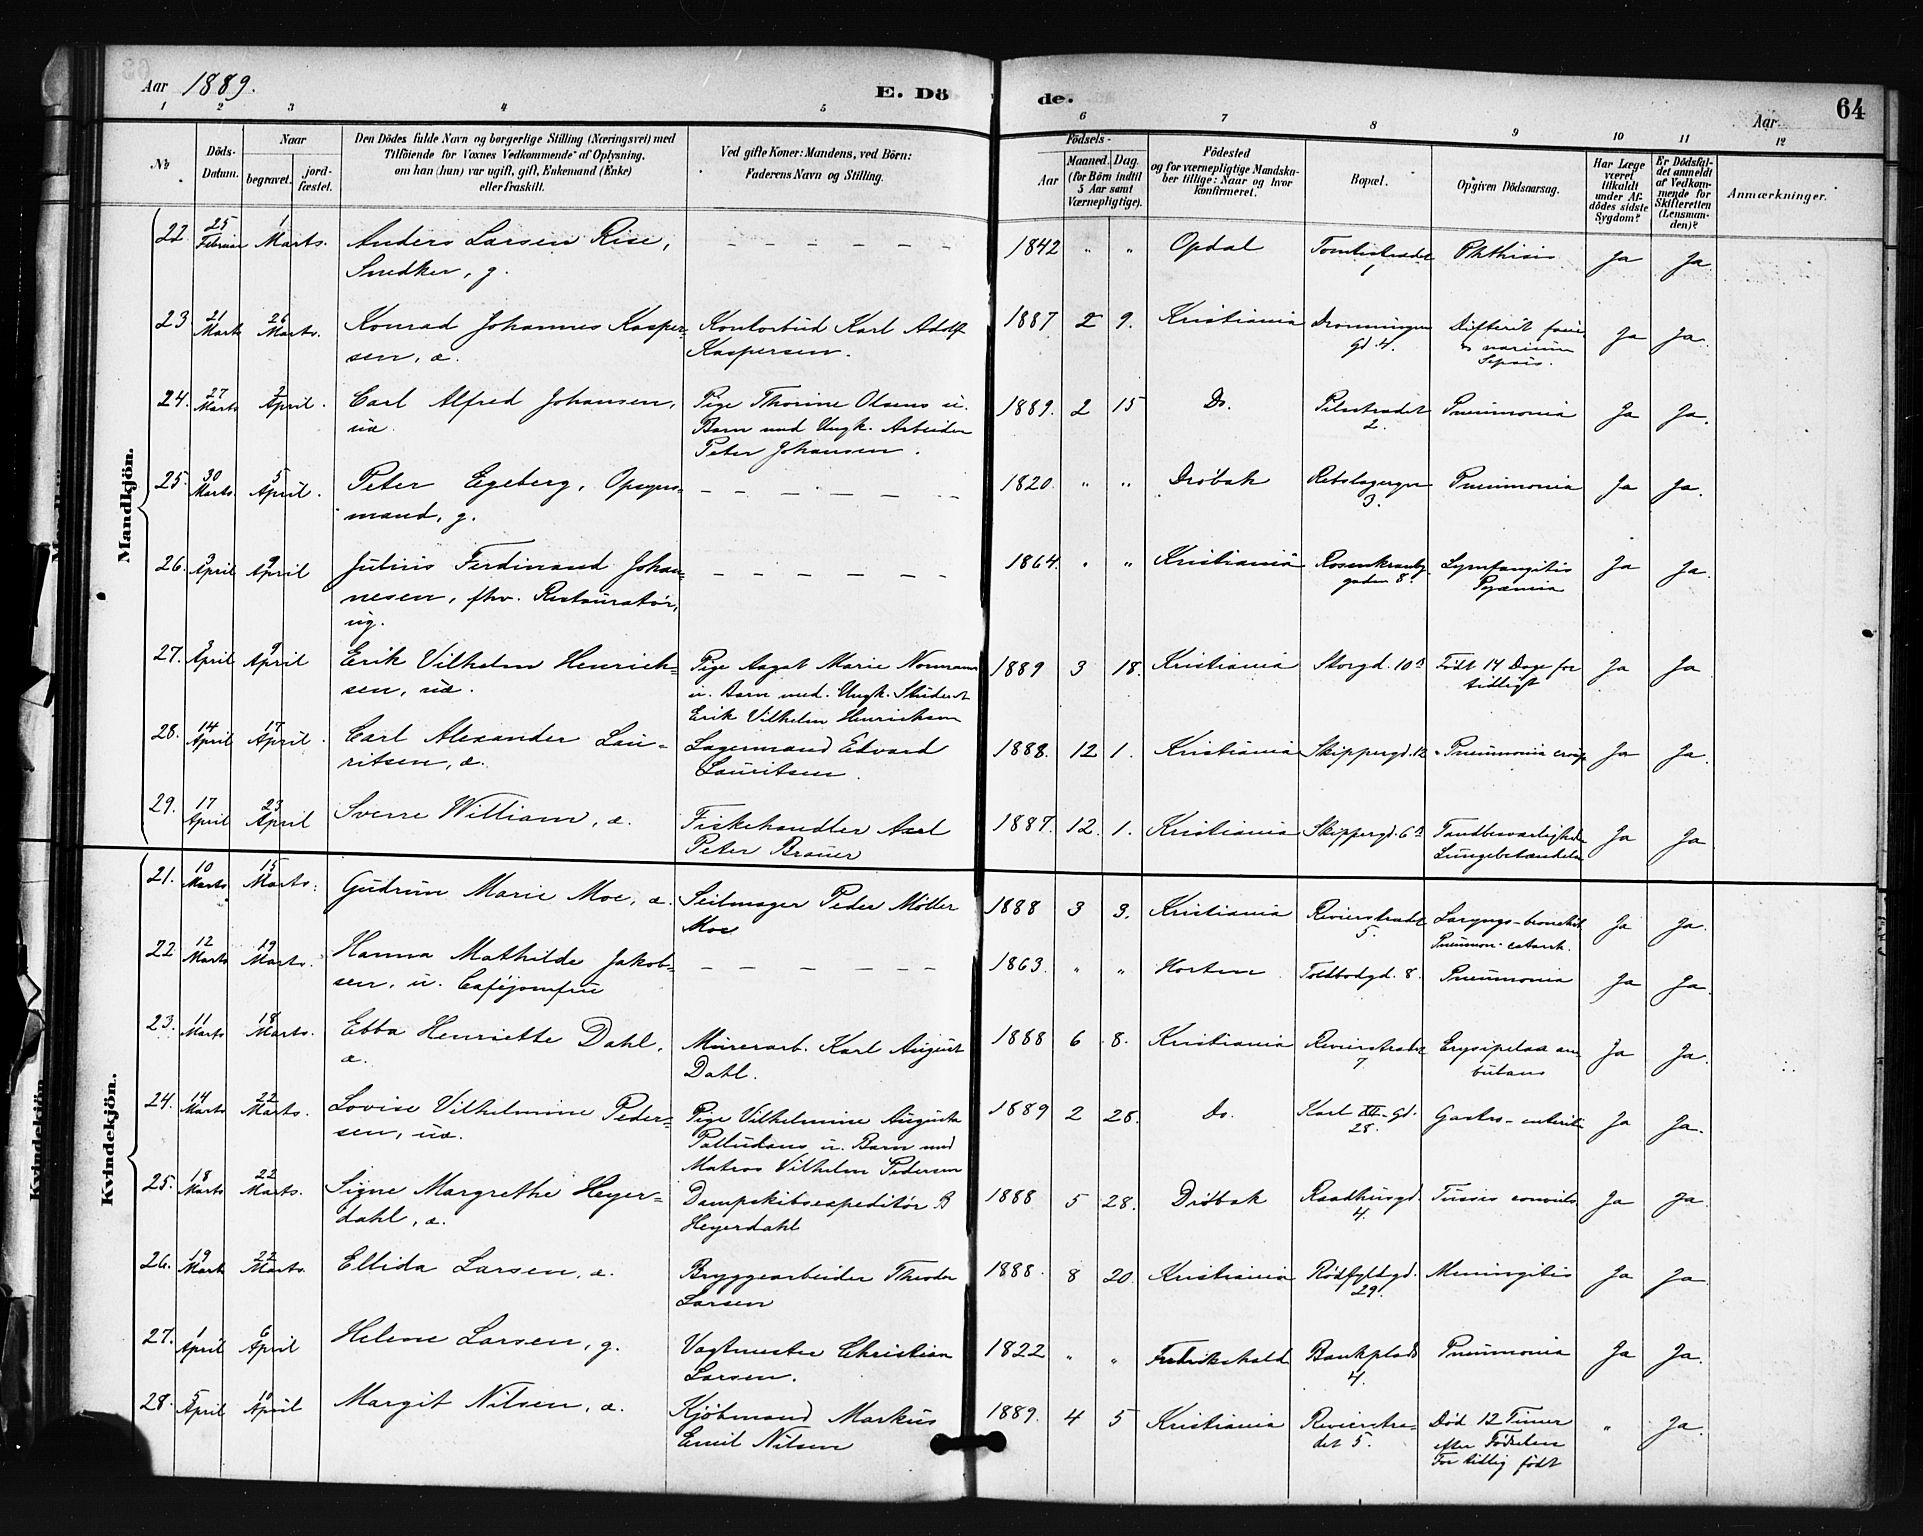 Aar 1889.
E. Döde.
Aar
64
1 2 3 4 5 6 7 8 9 10 11 12
No
Döds-Datum.
Naar
begravet.
jordfæstet.
Den Dödes fulde Navn og borgerlige Stilling (Næringsvei) med
Tilföiende for Voxnes Vedkommende af Oplysning,
om han (hun) var ugift, gift, Enkemand (Enke)
eller fraskilt.
Ved gifte Koner: Mandens, ved Börn:
Faderens Navn og Stilling.
Födsels-
Aar
Maaned. Dag.
(for Börn indtil
5 Aar samt
Værnepligtige).
Födested
og for værnepligtige Mandska-
ber tillige: Naar og hvor
konfirmeret.
Bopæl.
Opgiven Dödsaarsag.
Har Læge
været
tilkaldt
under Af-
dödes sidste
Sygdom?
Er Dödsfal-
det anmeldt
af Vedkom-
mende for
Skifteretten
(Lensman-
den)?
Anmærkninger.
Mandkjön.
22. 25 Februar 1 Marts. Anders Larsen Rise, — — — — — — 1842 " " Opdal Tomtestradet Phthisis Ja Ja
Snedker, g. 1
23 21 Marts 26 Marts. Konrad Johannes Kasper- Kontorbud Karl Adolf 1887 2 9. Kristiania Dronningen Difterit Ja Ja.
sen, æ. Kaspersen. gd. 4. Sepsis.
24. 27 Marts 2 April. Carl Alfred Johansen, Pige Thorine Olsens u. 1889. 2 15 Do. Pilestradet Pneumonia Ja Ja.
uæ. Barn med Ungk. Arbeider 2.
Peter Johansen.
25. 30 Marts. 5 April. Peter Egeberg, Opsyns- — — — — — — 1820. " " Dröbak Rebslagergn Pneumonia Ja Ja.
mand, g. 3.
26. 3 April 9 April Julius Ferdinand Johan- — — — — — — 1864. " " Kristiania Rosenkrantz Lymfangitis Ja Ja.
nesen, fhv. Restauratør, gaden 8. Pyæmia
ug.
27. 3 April 9 April Erik Vilhelm Henrick- Pige Aagot Marie Normann 1889 3 18. Kristiania Storgd. 10 B Født 14 Dage for Ja Ja
sen, uæ. u. Barn med. Ungk. Student tidligt
Erik Vilhelm Henriksen
28. 14 April 17 April. Carl Alexander Lau- Lagermand Edvard 1888. 12 1. Kristiania Skippergd. 12 Pneumonia croup Ja Ja.
ritsen, æ. Lauritsen.
29. 17 April 23 April Sverre William, æ. Fiskehandler Axel 1887. 12. 1. Kristiania Skippergd. 6 B Tandbesværligheder Ja Ja
Peter Brauer Lungebetændelse
Kvindekjön.
21. 10 Marts. 15 Marts. Gudrun Marie Moe, æ. Seilmager Peder Møller 1888 3 3. Kristiania Revierstradet Laryngo-bronchit Ja Ja.
Moe 5. Pneumon-catarrh.
22 12 Marts 19 Marts. Hanna Mathilde Jakob- — — — — — — 1863. " " Horten Toldbodgd. 8. Pneumonia Ja Ja.
sen, u. Caféjomfru
23. 11 Marts 18 Marts. Ebba Henriette Dahl, Murerarb. Karl August 1888 6 8. Kristiania Revierstradet Erysipelas am Ja Ja.
æ. Dahl. 7. bulans
24. 14 Marts 22 Marts. Lovise Vilhelmine Peder- Pige Vilhelmine Augusta 1889 2 28. Do. Karl XII. gd. Gastro-enterit Ja Ja.
sen, uæ. Palludans u. Barn med 28.
Matros Vilhelm Pedersen
25. 18 Marts 22 Marts. Signe Margrethe Heyer- Dampskibsexpeditør B 1888 5 28. Dröbak Raadhusgd. Tussis convuls. Ja Ja.
dahl, æ. Heyerdahl 4.
26. 19 Marts 22 Marts. Ellida Larsen, æ. Bryggearbeider Theodor 1888. 8 20. Kristiania Rödfyldgd. Meningitis Ja Ja.
Larsen 29.
27. 1 April 6 April Helene Larsen, g. Vagtmester Christian 1822 " " Fredrikshald Bankplads Pneumonia Ja Ja.
Larsen. 4.
28. 5 April 10 April Margit Nilsen, æ. Kjöbmand Markus 1889. 4 5 Kristiania Revierstra- Død 12 Timer " Ja.
Emil Nilsen det 5. efter Fødselen
For tidlig født